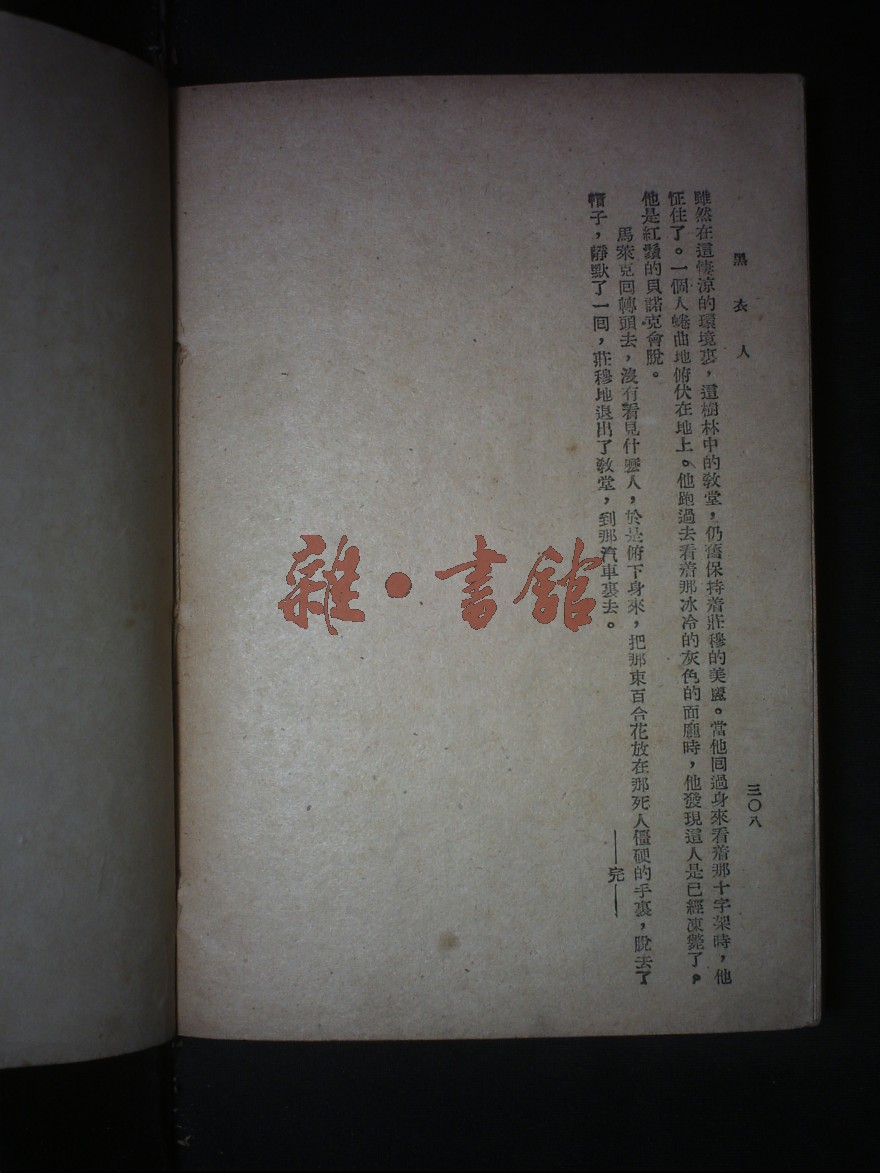 黑衣人
三〇八
雖然在這悽涼的環境裏，這樹林中的敎堂，仍舊保持着莊穆的美麗。當他囘過身來看着那十字架時，他
怔住了。一個人蜷曲地俯伏在地上。他跑過去看着那冰冷的灰色的面龐時，他發現這人是已經凍斃了。
他是紅鬚的貝諾克會脫。
馬萊克囘轉頭去，沒有看見什麼人，於是俯下身來，把那束百合花放在那死人僵硬的手裏，脫去了
帽子，靜默了一囘，莊穆地退出了敎堂，到那汽車裏去。
——完——
雜·書館